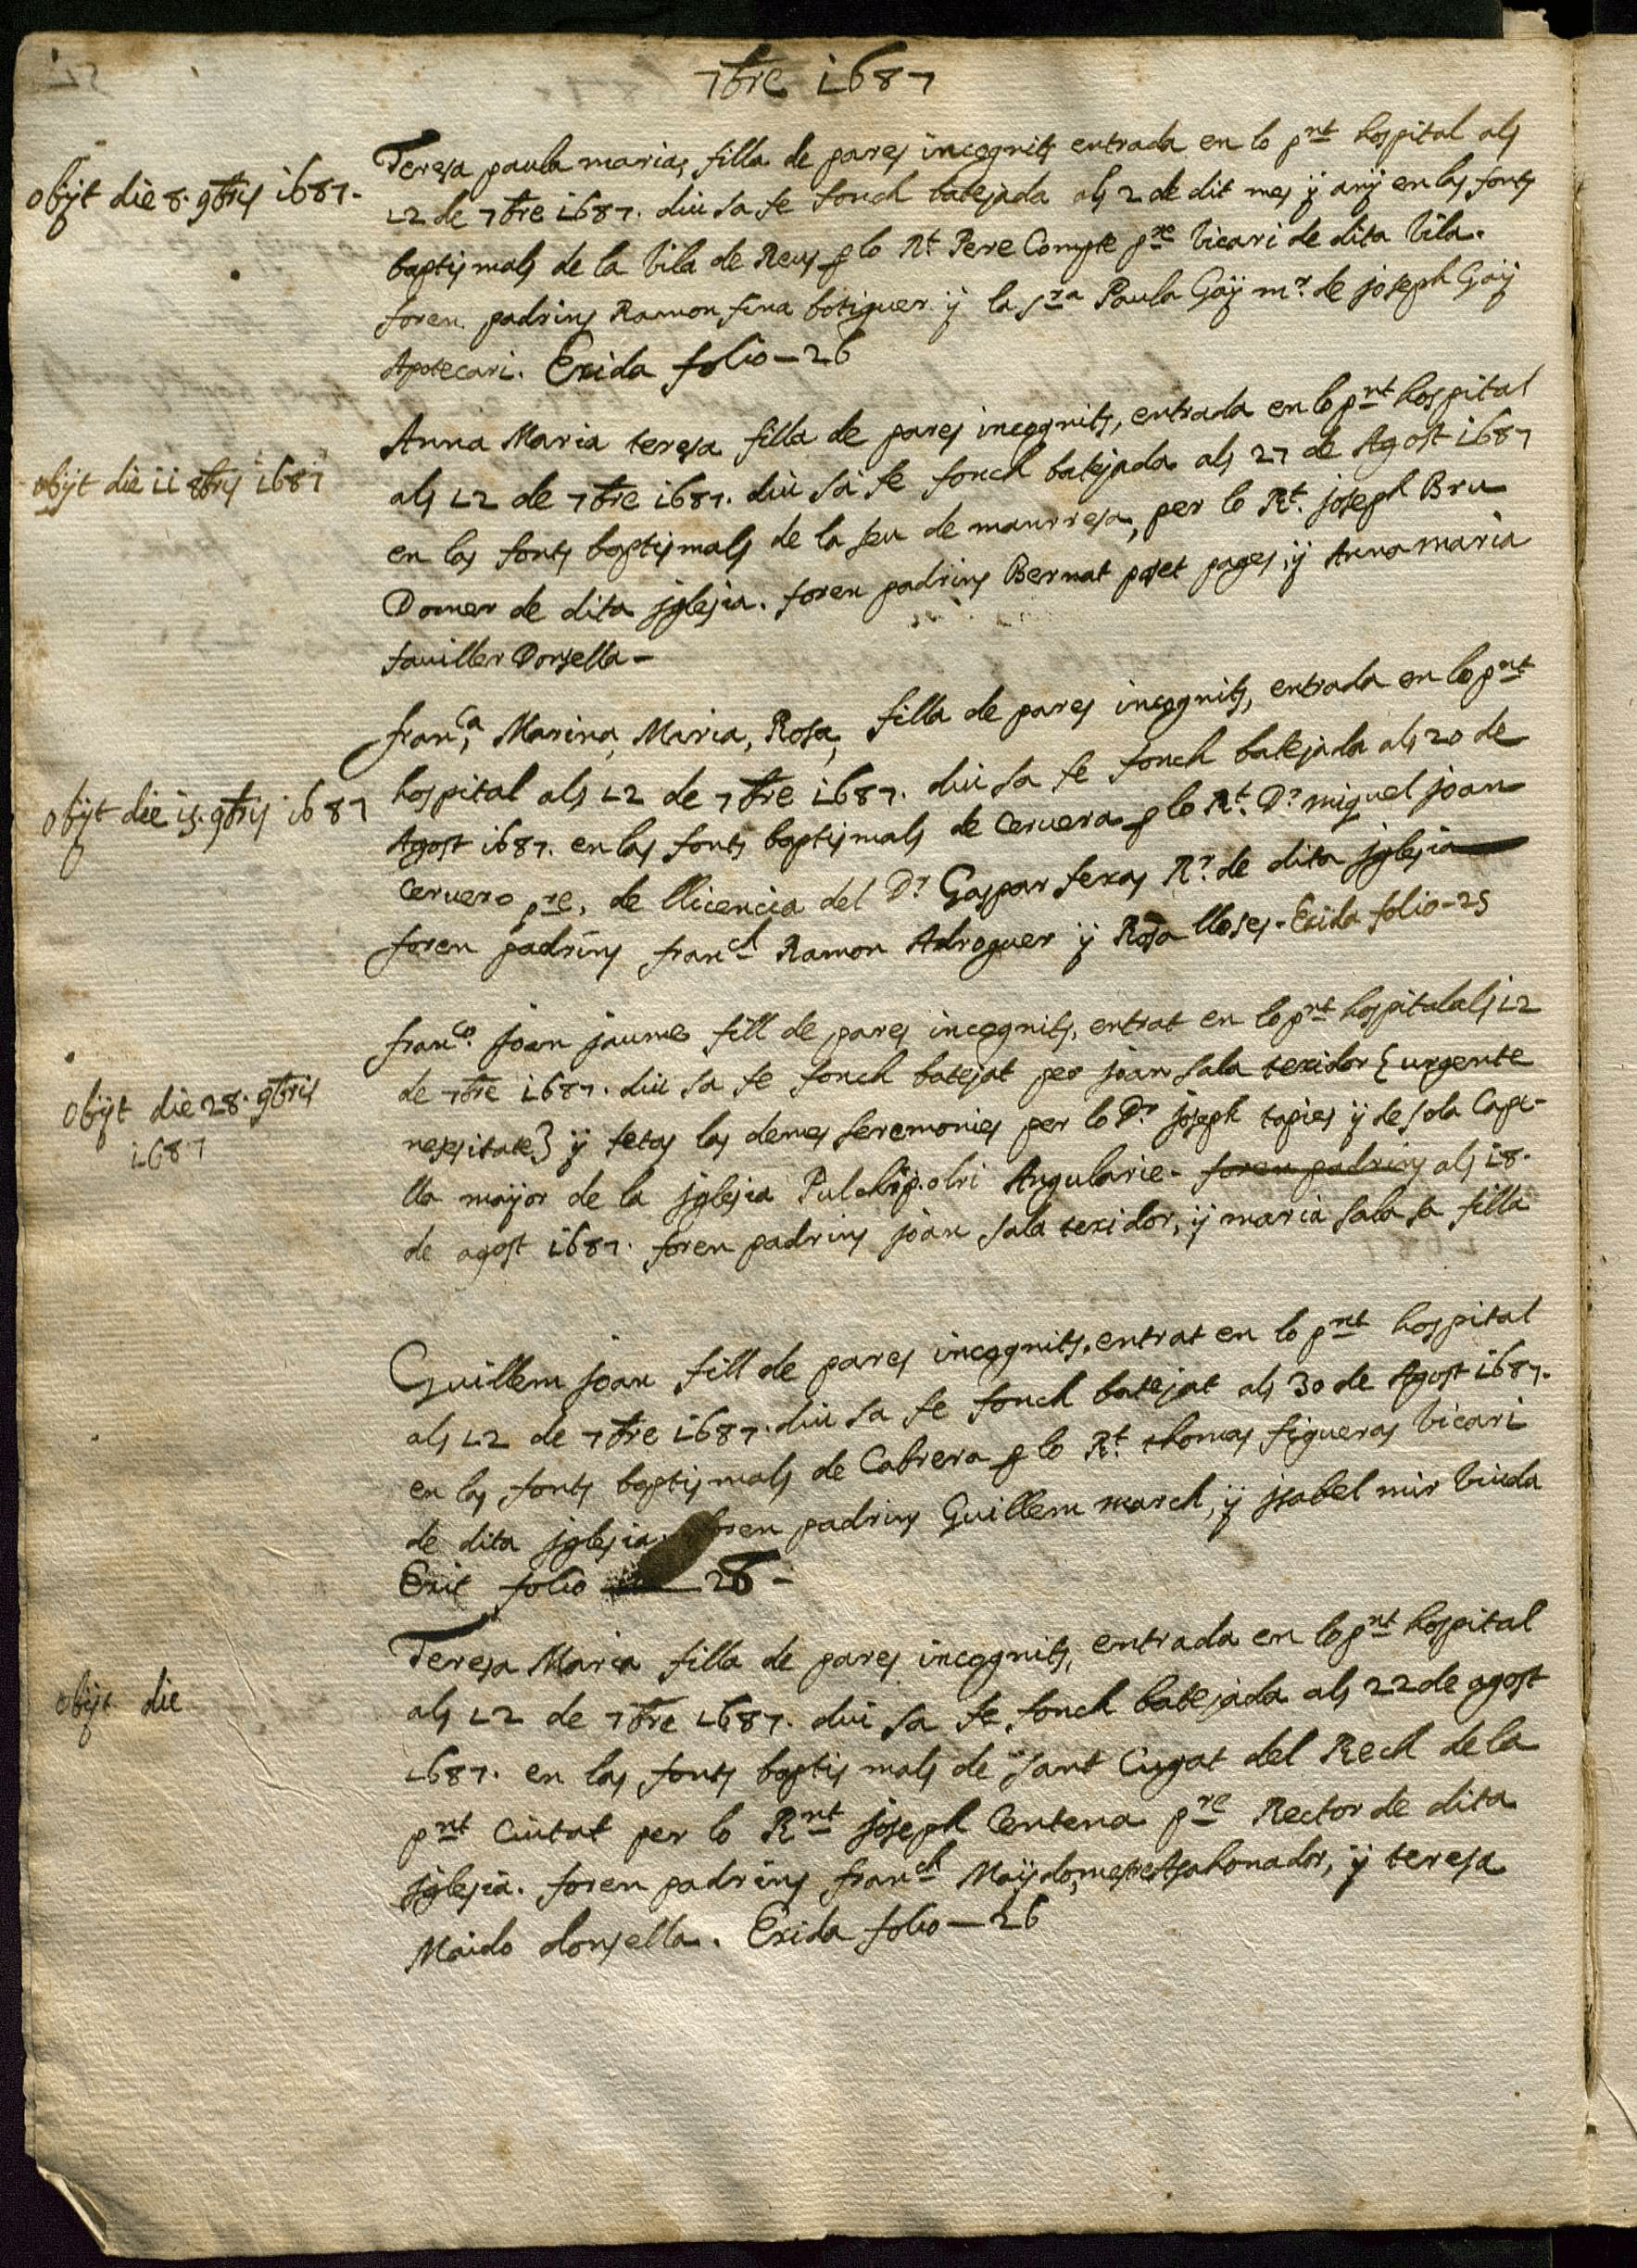 7bre 1687
Obijt die 8. 9bris 1687.
Teresa paula maria, filla de pares incognits entrada en lo pnt hospital als
12 de 7bre 1687. diu sa fe fonch batejada als 2 de dit mes ÿ anÿ en las fonts
baptismals de la Vila de Reus p lo Rt Pere Compte pre Vicari de dita Vila.
foren padrins Ramon fina botiguer ÿ la sra Paula Gaÿ mr. de joseph Gaÿ
Apotecari. Exida folio - 26
obijt die 11 8bris 1687
Anna Maria teresa filla de pares incognits, entrada en lo pnt hospital
als 12 de 7bre 1687. diu sa fe fonch batejada als 27 de Agost 1687
en las fonts baptismals de la seu de manrresa, per lo Rt. joseph Bru
Domer de dita jglesia. foren padrins Bernat pojet pages, ÿ Anna maria
fauiller Donsella -
Obijt die 15. 9bris 1687
franca, Marina, Maria, Rosa, filla de pares incognits, entrada en lo pnt
hospital als 12 de 7bre 1687. diu sa fe fonch batejada als 20 de
Agost 1687. en las fonts baptismals de Ceruera p lo Rt. Dr miquel joan
Ceruero pre, de llicencia del Dr Gaspar feras Rr. de dita jglesia
foren padrins franch Ramon Adroguer ÿ Rosa lloses. Exida folio - 25
Obijt die 28. 9bris
1687
franco. joan jaume fill de pares incognits, entrat en lo pnt hospital als 12
de 7bre 1687. diu sa fe fonch batejat per joan sala texidor {urgente
nesesitate} ÿ fetas las demes seremonies per lo Dr joseph tapies ÿ de sola Cape-
lla major de la jglesia Pulchripolri Angularie - foren padrins als 18.
de agost 1687. foren padrins joan sala texidor, ÿ maria sala sa filla
Guillem joan fill de pares incognits, entrat en lo pnt hospital
als 12 de 7bre 1687. diu sa fe fonch batejat als 30 de Agost 1687.
en las fonts baptismals de Cabrera p lo Rt. thomas figueras Vicari
de dita jglesia. foren padrins Guillem march, ÿ jsabel mir Viuda
Exit folio 26 -
Obijt die
Teresa Maria filla de pares incognits, entrada en lo pnt hospital
als 12 de 7bre 1687. diu sa fe fonch batejada als 22 de agost
1687. en las fonts baptismals de sant Cugat del Rech de la
pnt Ciutat per lo Rnt joseph Centena pre Rector de dita
jglesia. foren padrins franch Maÿdo, mestre Asahonador, ÿ teresa
Maido donsella. Exida folio - 26